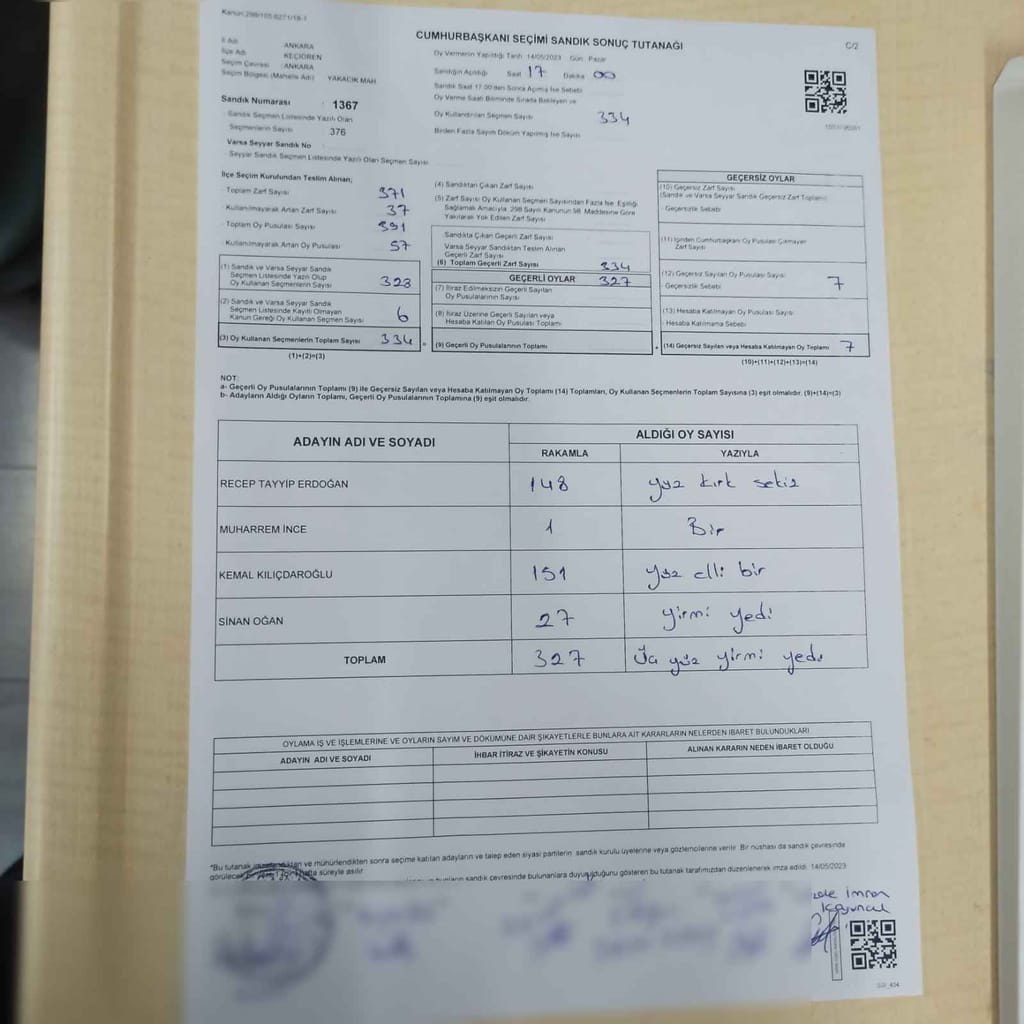 Kanun:298/105.6271/18-1
CUMHURBAŞKANI SEÇİMİ SANDIK SONUÇ TUTANAĞI
C/2
İl Adı ANKARA
İlçe Adı KEÇİÖREN
Seçim Çevresi ANKARA
Seçim Bölgesi (Mahalle Adı) YAKACIK MAH
Sandık Numarası : 1367
Sandık Seçmen Listesinde Yazılı Olan
Seçmenlerin Sayısı 376
Varsa Seyyar Sandık No
Seyyar Sandık Seçmen Listesinde Yazılı Olan Seçmen Sayısı
Oy Vermenin Yapıldığı Tarih 14/05/2023 Gün Pazar
Sandığın Açıldığı Saat 17 Dakika 00
Sandık Saat 17.00'den Sonra Açılmış İse Sebebi
Oy Verme Saati Bitiminde Sırada Bekleyen ve
Oy Kullandırılan Seçmen Sayısı 334
Birden Fazla Sayım Döküm Yapılmış İse Sayısı
İlçe Seçim Kurulundan Teslim Alınan;
Toplam Zarf Sayısı 371
Kullanılmayarak Artan Zarf Sayısı 37
Toplam Oy Pusulası Sayısı 391
Kullanılmayarak Artan Oy Pusulası 57
(1) Sandık ve Varsa Seyyar Sandık
Seçmen Listesinde Yazılı Olup
Oy Kullanan Seçmenlerin Sayısı 323
(2) Sandık ve Varsa Seyyar Sandık
Seçmen Listesinde Kayıtlı Olmayan
Kanun Gereği Oy Kullanan Seçmen Sayısı 6
(3) Oy Kullanan Seçmenlerin Toplam Sayısı 334 =
(1)+(2)=(3)
(4) Sandıktan Çıkan Zarf Sayısı
(5) Zarf Sayısı Oy Kullanan Seçmen Sayısından Fazla İse Eşitliği
Sağlamak Amacıyla, 298 Sayılı Kanunun 98. Maddesine Göre
Yakılarak Yok Edilen Zarf Sayısı
Sandıkta Çıkan Geçerli Zarf Sayısı
Varsa Seyyar Sandıktan Teslim Alınan
Geçerli Zarf Sayısı
(6) Toplam Geçerli Zarf Sayısı 334
GEÇERLİ OYLAR 327
(7) İtiraz Edilmeksizin Geçerli Sayılan
Oy Pusulalarının Sayısı
(8) İtiraz Üzerine Geçerli Sayılan ve
Hesaba Katılan Oy Pusulası Toplamı
(9) Geçerli Oy Pusulalarının Toplamı +
GEÇERSİZ OYLAR
(10) Geçersiz Zarf Sayısı
(Sandık ve Varsa Seyyar Sandık Geçersiz Zarf Toplamı)
- Geçersizlik Sebebi
(11) İçinden Cumhurbaşkanı Oy Pusulası Çıkmayan
Zarf Sayısı
(12) Geçersiz Sayılan Oy Pusulası Sayısı 7
- Geçersizlik Sebebi
(13) Hesaba Katılmayan Oy Pusulası Sayısı
- Hesaba Katılmama Sebebi
(14) Geçersiz Sayılan veya Hesaba Katılmayan Oy Toplamı 7
(10)+(11)+(12)+(13)=(14)
NOT:
a- Geçerli Oy Pusulalarının Toplamı (9) ile Geçersiz Sayılan veya Hesaba Katılmayan Oy Toplamı (14) Toplamları, Oy Kullanan Seçmenlerin Toplam Sayısına (3) eşit olmalıdır. (9)+(14)=(3)
b- Adayların Aldığı Oyların Toplamı, Geçerli Oy Pusulalarının Toplamına (9) eşit olmalıdır.
ADAYIN ADI VE SOYADI ALDIĞI OY SAYISI
RAKAMLA YAZIYLA
RECEP TAYYİP ERDOĞAN 148 yüz kırk sekiz
MUHARREM İNCE 1 Bir
KEMAL KILIÇDAROĞLU 151 yüz elli bir
SİNAN OĞAN 27 yirmi yedi
TOPLAM 327 Üç yüz yirmi yedi
OYLAMA İŞ VE İŞLEMLERİNE VE OYLARIN SAYIM VE DÖKÜMÜNE DAİR ŞİKAYETLERLE BUNLARA AİT KARARLARIN NELERDEN İBARET BULUNDUKLARI
ADAYIN ADI VE SOYADI İHBAR İTİRAZ VE ŞİKAYETİN KONUSU ALINAN KARARIN NEDEN İBARET OLDUĞU
*Bu tutanak imzalandıktan ve mühürlendikten sonra seçime katılan adayların ve talep eden siyasi partilerin sandık kurulu üyelerine veya gözlemcilerine verilir. Bir nüshası da sandık çevresinde
görülecek hafta süreyle asılır
sandık çevresinde bulunanlara duyurulduğunu gösteren bu tutanak tarafımızdan düzenlenerek imza edildi. 14/05/2023
İmran
Koyuncu